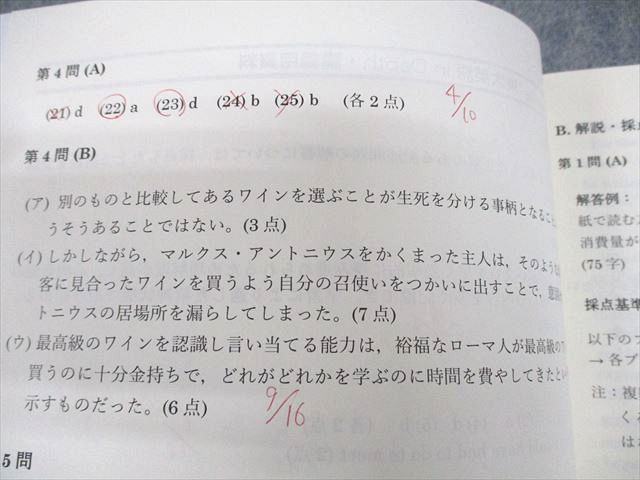 第4問(A)
(21) d (22) a (23) d (24) b (25) b (各2点)
4/10
第4問(B)
(ア) 別のものと比較してあるワインを選ぶことが生死を分ける事柄となるこ
うそうあることではない。(3点)
(イ) しかしながら，マルクス・アントニウスをかくまった主人は，そのような
客に見合ったワインを買うよう自分の召使いをつかいに出すことで，
トニウスの居場所を漏らしてしまった。(7点)
(ウ) 最高級のワインを認識し言い当てる能力は，裕福なローマ人が最高級の
買うのに十分金持ちで，どれがどれかを学ぶのに時間を費やしてきたとい
示すものだった。(6点)
9/16
5問
B. 解説・採点
第1問(A)
解答例：
紙で読む
消費量が
(75字)
採点基準
以下の
→ 各
注：複
くる
は